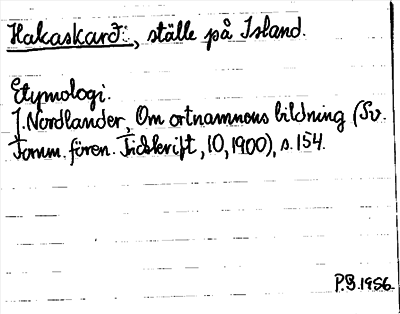 Hakaskarð:, ställe på Island.
Etymologi.
J. Nordlander, Om ortnamnens bildning (Sv.
Fornm. fören. Tidskrift, 10, 1900), s. 154.
P.B. 1956.